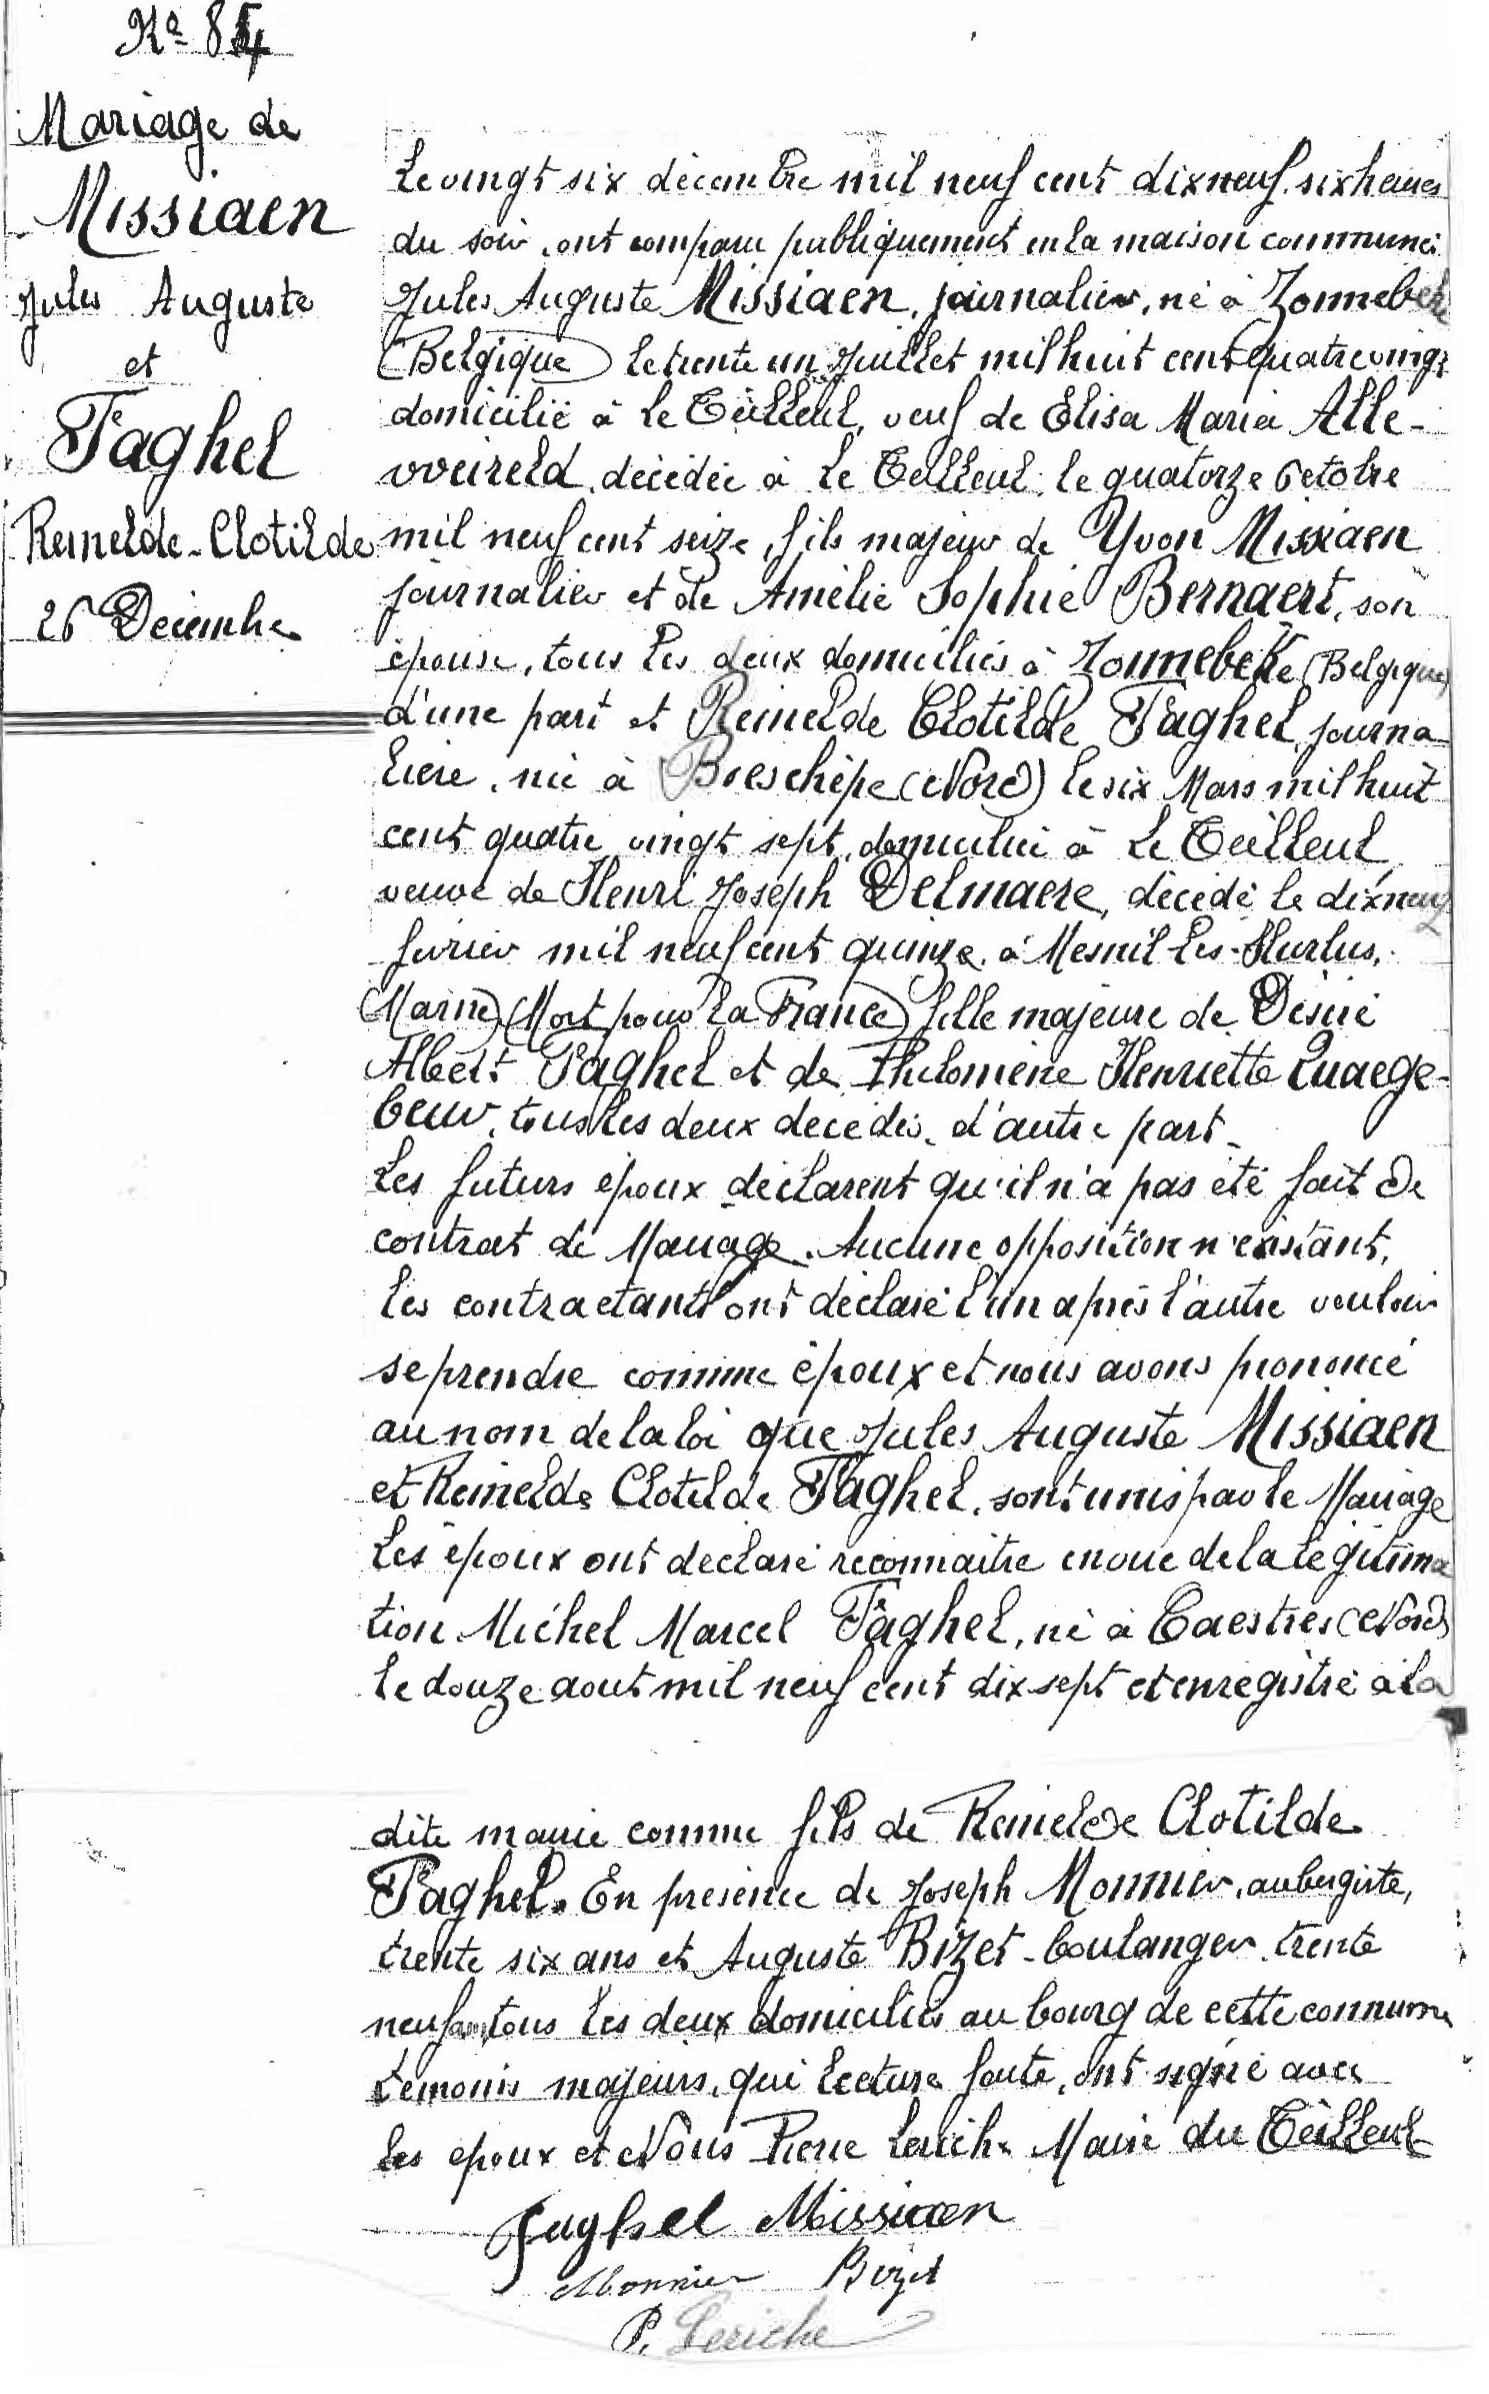 No 84
Mariage de
Missiaen
Jules Auguste
et
Faghel
Reinelde-Clotilde
26 Décembre
Le vingt six décembre mil neuf cent dixneuf six heures
du soir, ont comparu publiquement en la maison commune
Jules Auguste Missiaen, journalier, né à Zonnebeke
(Belgique) le trente un Juillet mil huit cent quatre vingt
domicilié à Le Teilleul, veuf de Elisa Maria Alle-
weireld, décédée à Le Teilleul, le quatorze octobre
mil neuf cent seize, fils majeur de Yvon Missiaen
journalier et de Amélie Sophie Bernaert, son
épouse, tous les deux domiciliés à Zonnebeke (Belgique)
d'une part et Reinelde Clotilde Faghel, journa-
lière, née à Boeschèpe (Nord) le six Mars mil huit
cent quatre vingt sept, domiciliée à Le Teilleul,
veuve de Henri Joseph Delmaere, décédé le dixneuf
février mil neuf cent quinze à Mesnil-les-Hurlus,
(Marne) (Mort pour la France) fille majeure de Désiré
Albert Faghel et de Philomène Henriette Quaege-
beur, tous les deux décédés, d'autre part.
Les futurs époux déclarent qu'il n'a pas été fait de
contrat de Mariage. Aucune opposition n'existant,
les contractants ont déclaré l'un après l'autre vouloir
se prendre comme époux et nous avons prononcé
au nom de la loi que Jules Auguste Missiaen
et Reinelde Clotilde Faghel, sont unis par le Mariage
Les époux ont déclaré reconnaitre en vue de la légitima
tion Michel Marcel Faghel, né à Caestres (Nord)
le douze aout mil neuf cent dix sept et enregistré à la
dite mairie comme fils de Reinelde Clotilde
Faghel. En présence de Joseph Monnier, aubergiste,
trente six ans et Auguste Bizet-boulanger, trente
neuf ans, tous les deux domiciliés au bourg de cette commune
témoins majeurs, qui lecture faite, ont signé avec
les époux et Nous Pierre Leriche Maire du Teilleul
Faghel Missiaen
Monnier Bizet
P. Leriche